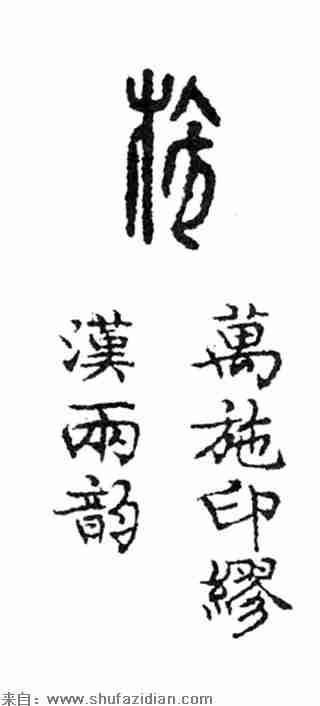 施
萬施印繆
漢兩韵
来自：www.shufazidian.com